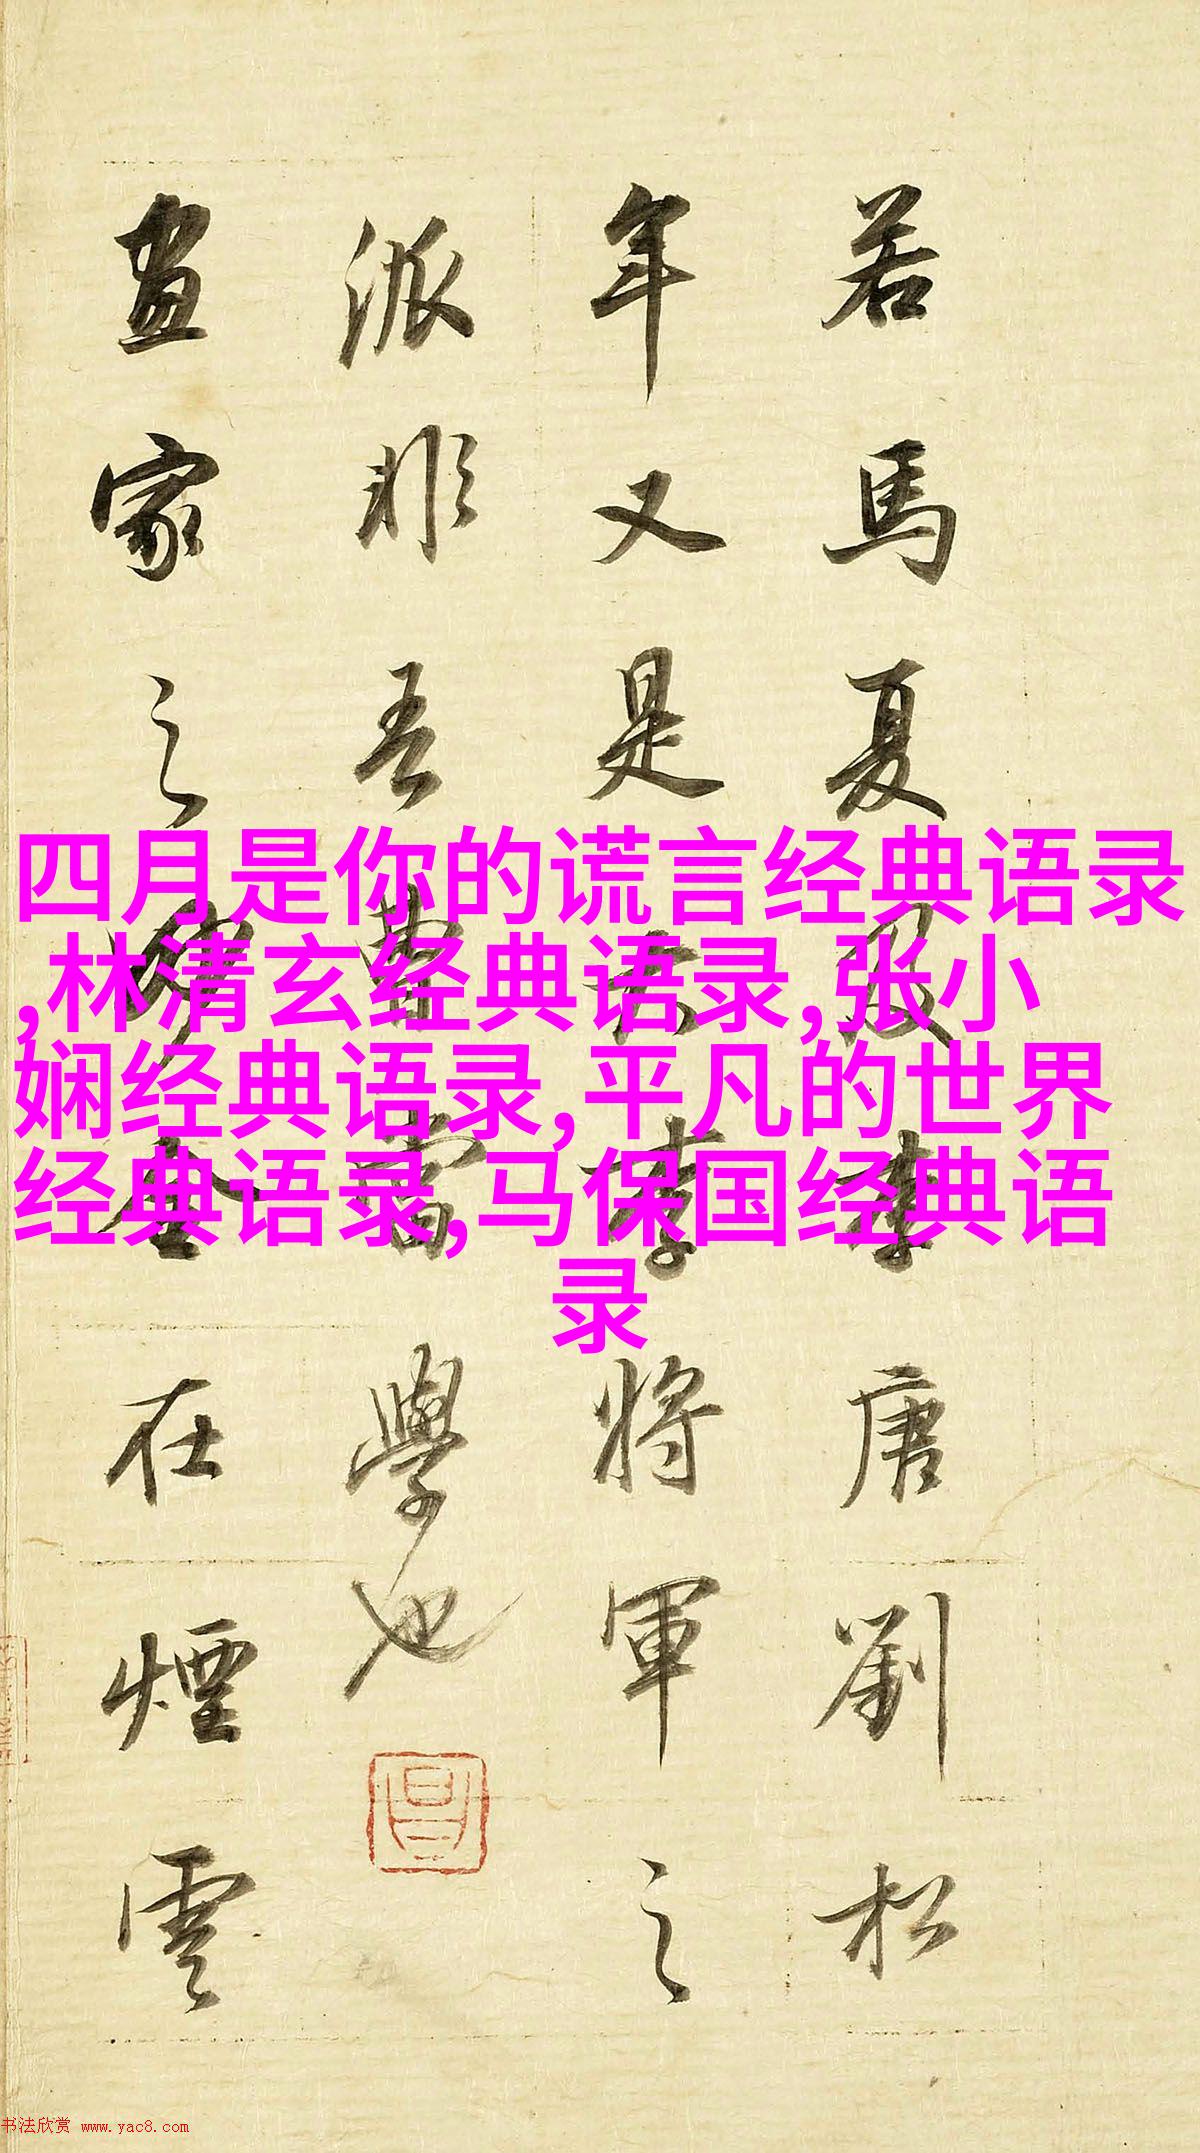 若馬夏及李唐劉松
年又是大李將軍之
派非吾曹當學也
畫家之妙全在煙雲
四月是你的谎言经典语录
,林清玄经典语录,张小
娴经典语录,平凡的世界
经典语录,马保国经典语
录
书法欣赏 www.yac8.com